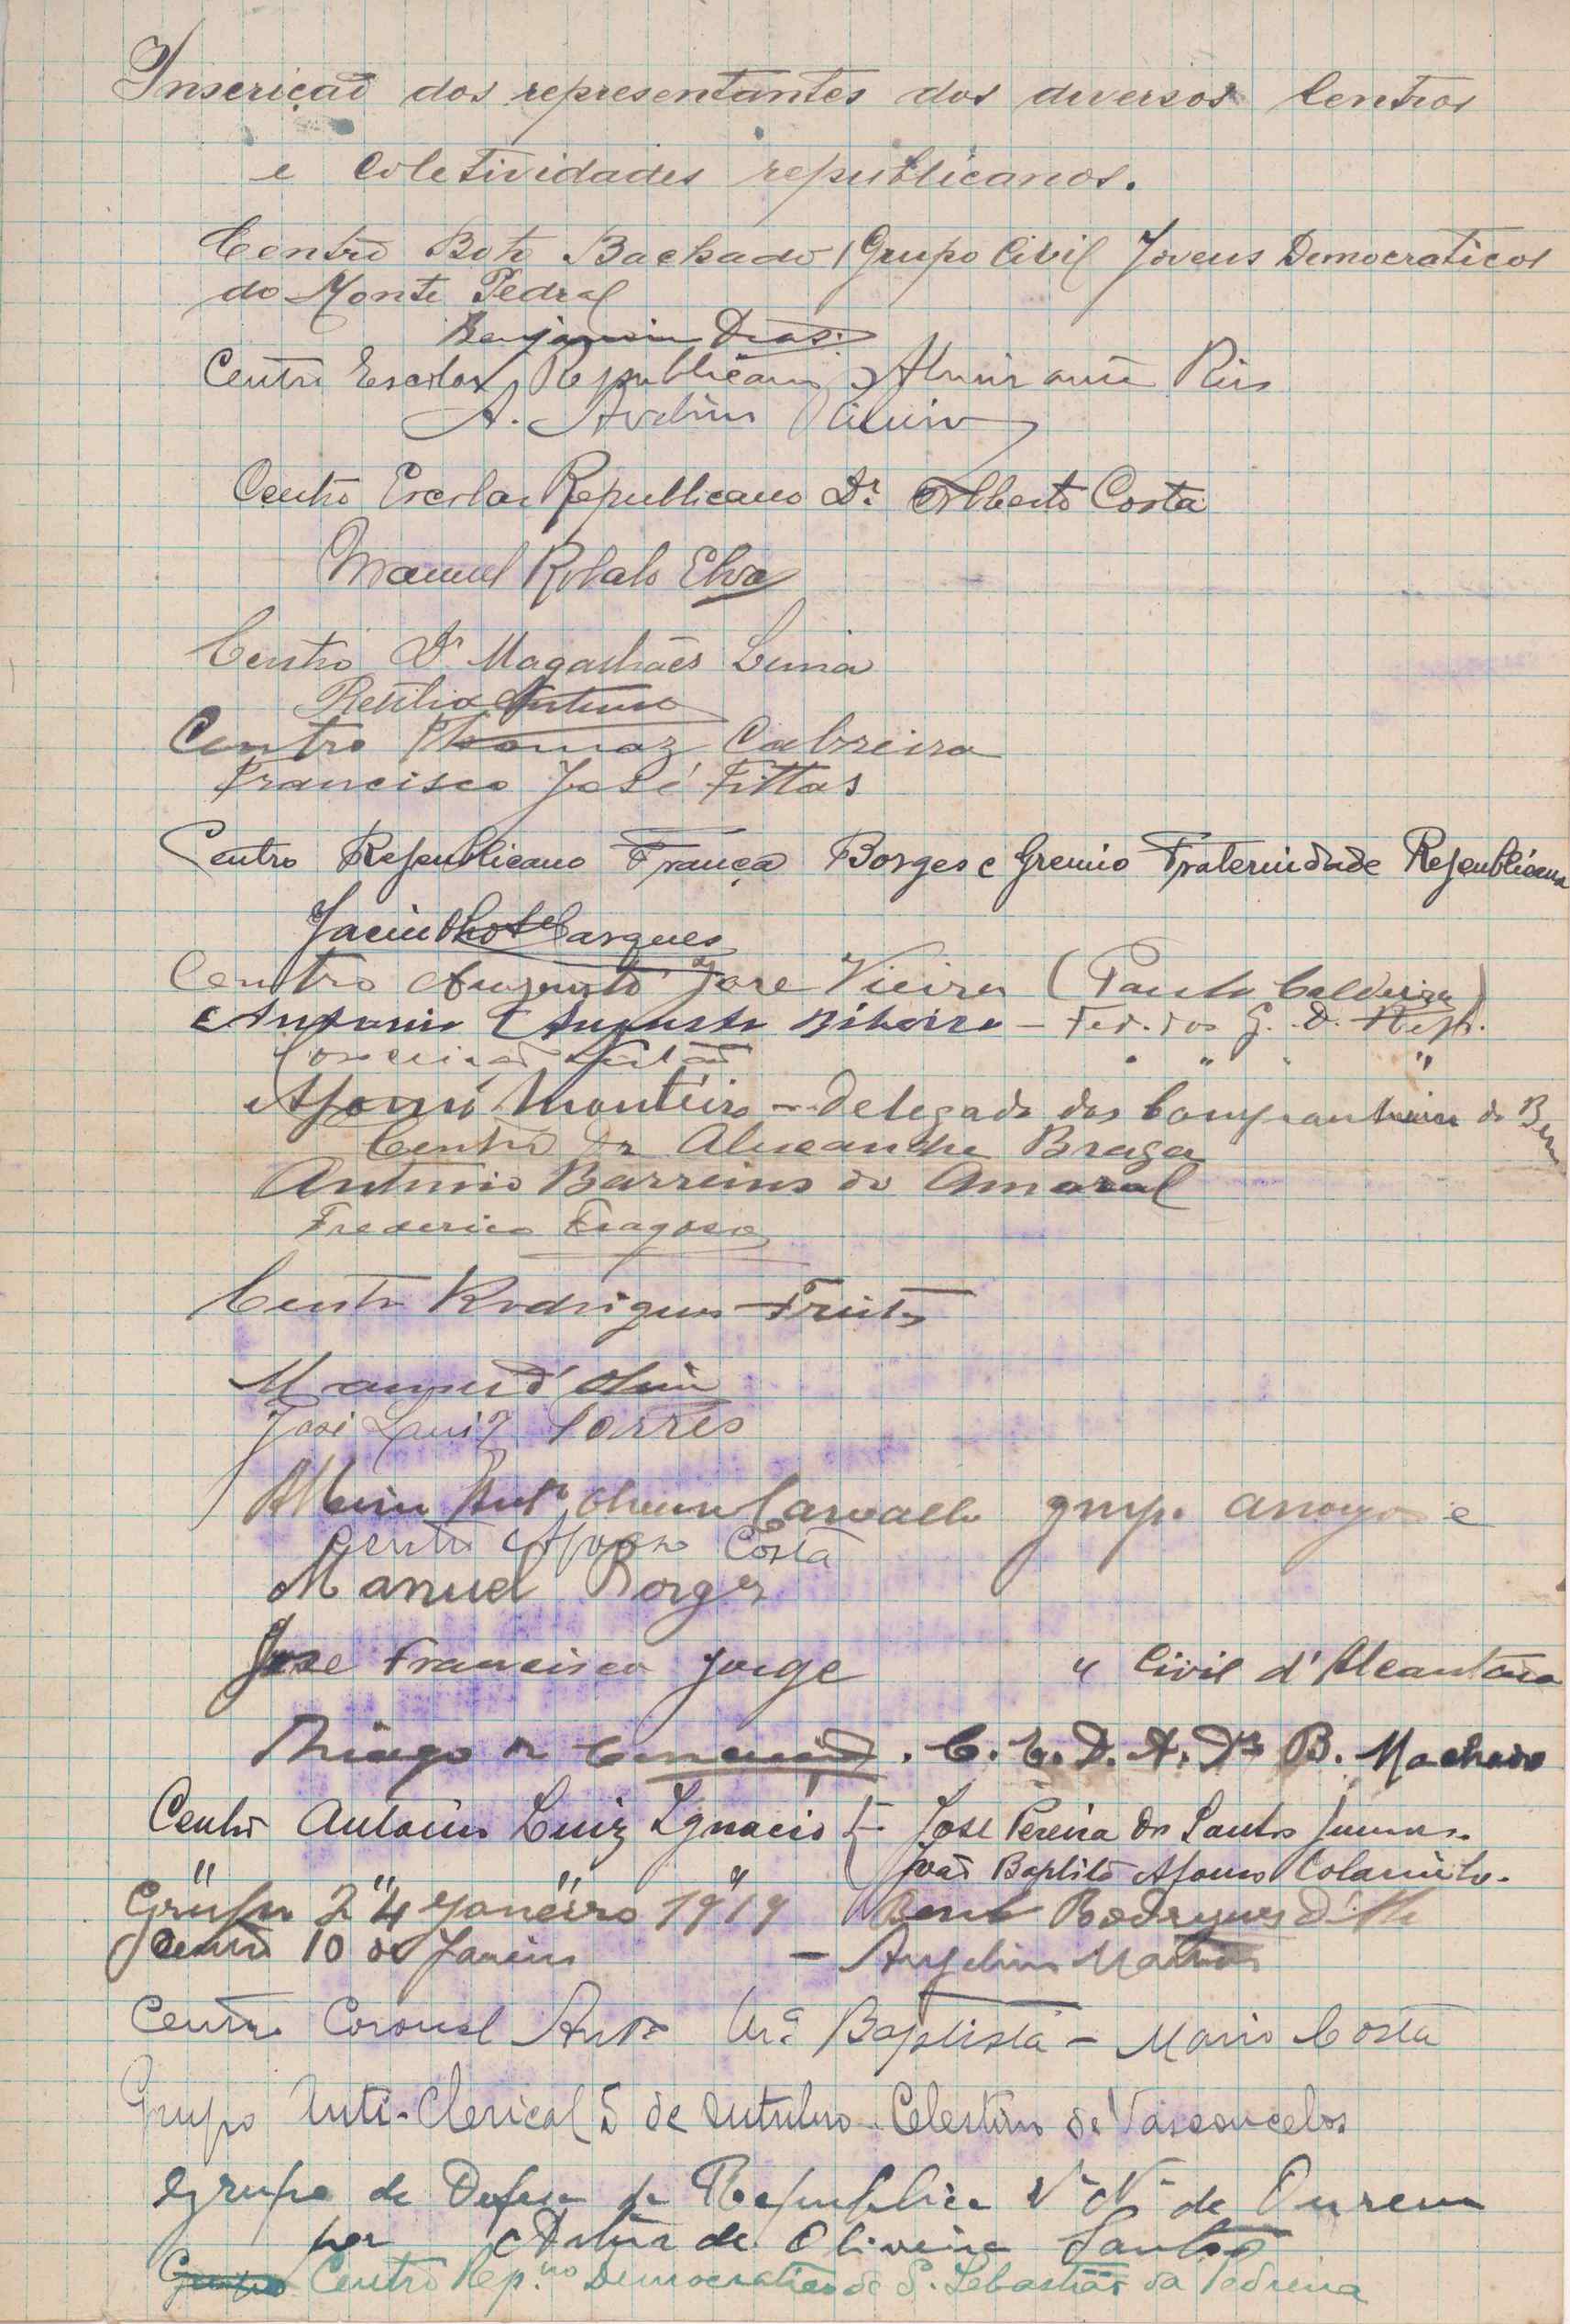 Inscrição dos representantes dos diversos Centros
e coletividades republicanos.
Centro Boto Machado / Grupo Civil Jovens Democraticos
do Monte Pedral
Benjamin Dias
Centro Escolar Republicano Almirante Reis
A. Avelino
Centro Escolar Republicano Dr. Alberto Costa
Manuel Rolalo Elva
Centro Dr Magalhães Lima
Centro Thomaz Cabreira
Francisco José Fittas
Centro Republicano França Borges e Gremio Fraternidade Republicana
Jacintho Marques
Centro Augusto José Vieira (Paulo Caldeira)
Antonio Augusto Ribeiro – Fed. dos G. D. Rep.
" " " "
Afonso Monteiro – delegado dos do
Centro Dr Alexandre Braga
Antonio Barreiros do Amaral
Frederico Fragoso
Centro Rodrigues Freitas
Manuel d'
José Luiz Torres
Carvalho grupo Arroyos e
Centro Afonso Costa
Manuel Borges
Jose Francisco Jorge " Civil d'Alcantara
C. E. D. A. Dr B. Machado
Centro Antonio Luiz Ignacio { – José Pereira dos Santos Junior.
" " " " João Baptista Afonso
Grupo 24 Janeiro 1919 Bento Rodrigues d'
Centro 10 de Janeiro – Angelino
Centro Coronel Antº Mª Baptista – Mario Costa
Grupo Anti-Clerical 5 de Outubro – Celestino de Vasconcelos
Grupo de Defesa da Republica Vª Nª de Ourem
por Artur de Oliveira Santos
Grupo Centro Rep.no Democratico de S. Sebastião da Pedreira